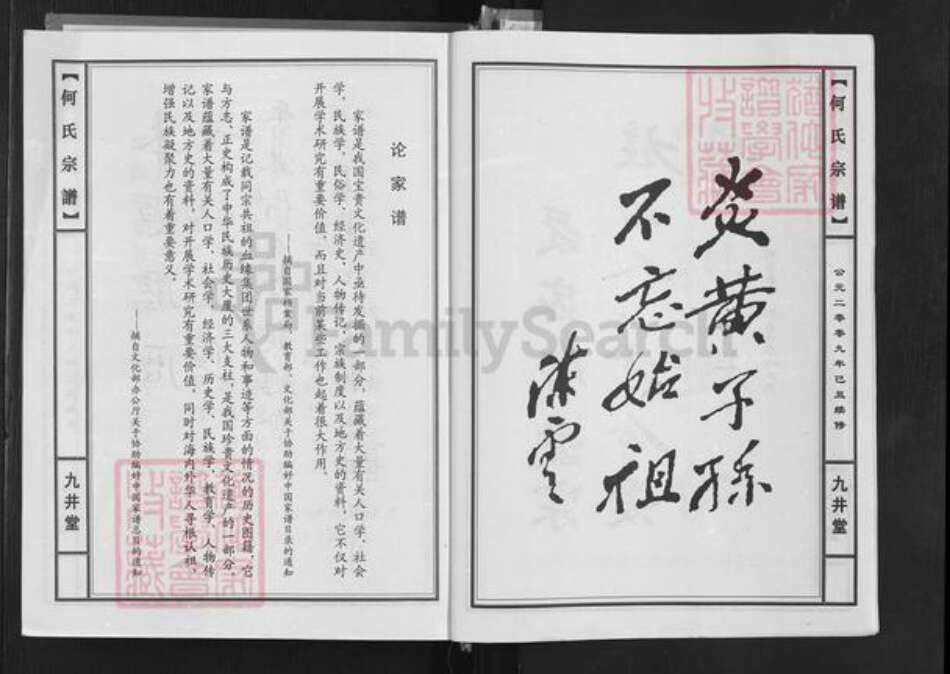 【何氏宗譜】
公元二零零九年己丑续修
九井堂
炎黄子孫
不忘始祖
陈云
论家谱
家谱是我国宝贵文化遗产中亟待发掘的一部分，蕴藏着大量有关人口学、社会
学、民族学、民俗学、经济史、人物传记、宗族制度以及地方史的资料，它不仅对
开展学术研究有重要价值，而且对当前某些工作也起着很大作用。
——摘自国家档案局、教育部、文化部关于协助编好中国家谱目录的通知
家谱是记载同宗共祖的血缘集团世系人物和事迹等方面的情况的历史图籍，它
与方志、正史构成了中华民族历史大厦的三大支柱，是我国珍贵文化遗产的一部分。
家谱蕴藏着大量有关人口学、社会学、经济学、历史学、民族学、教育学、人物传
记以及地方史的资料，对开展学术研究有重要价值，同时对海内外华人寻根认祖，
增强民族凝聚力也有着重要意义。
——摘自文化部办公厅关于协助编好中国家谱总目的通知
【何氏宗譜】
九井堂
FamilySearch